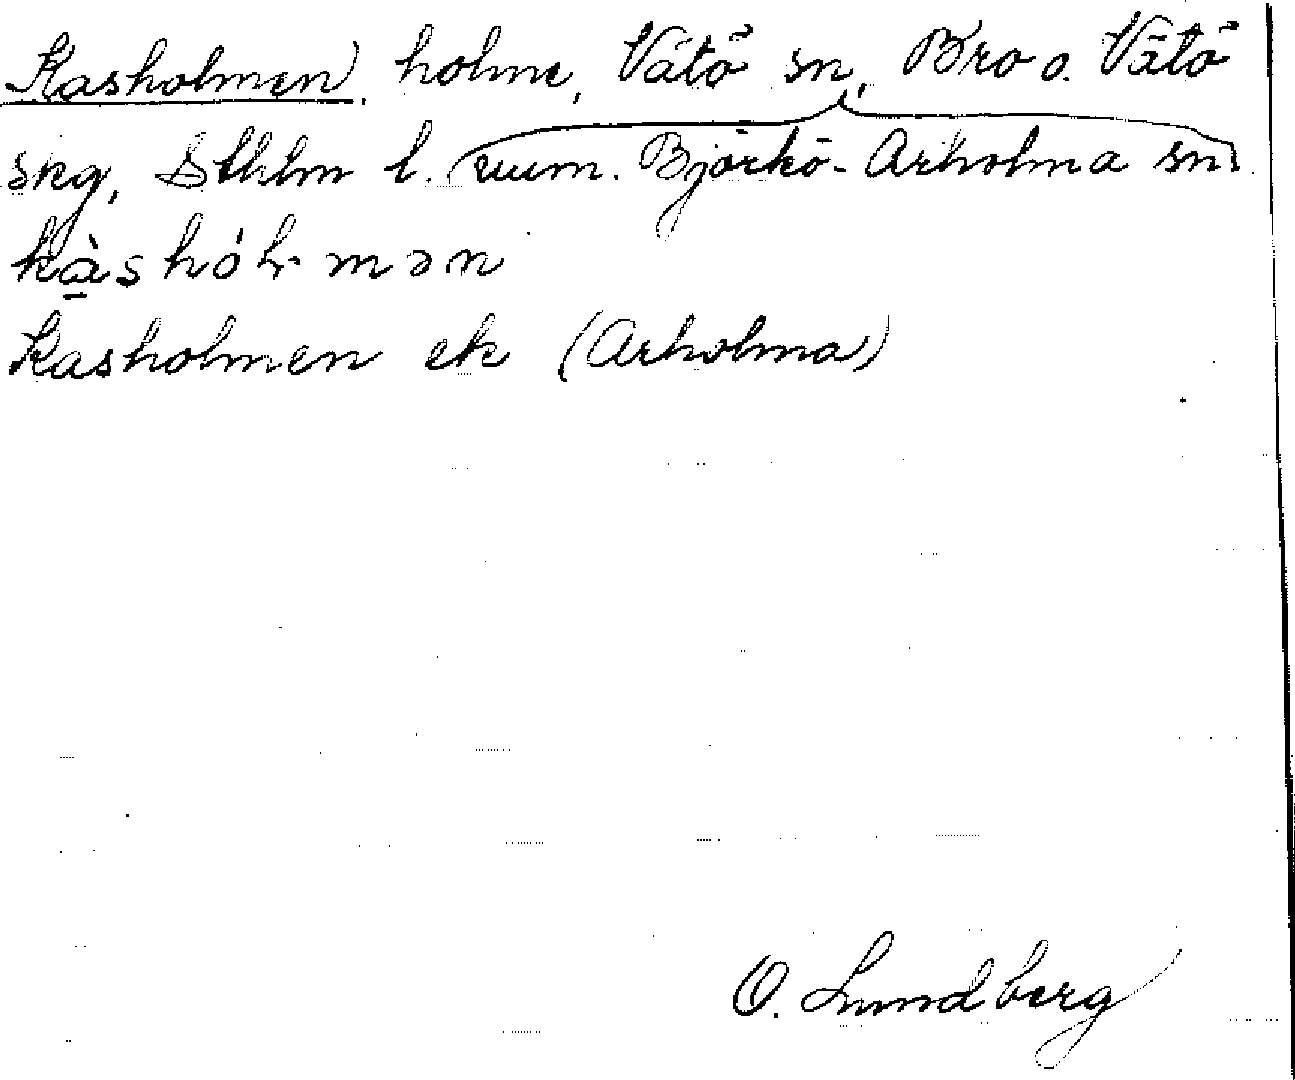 Kasholmen, holme, Vätö sn, Bro o. Vätö
skg, Sthlm l. num. Björkö-Arholma sn.
kàshólmən
Kasholmen ek (Arholma)
O. Lundberg